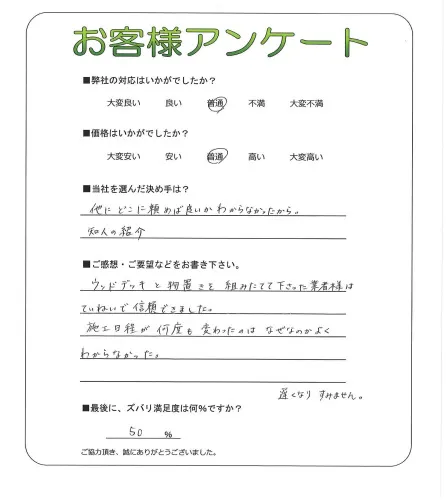 お客様アンケート
■弊社の対応はいかがでしたか？
大変良い 良い 普通 不満 大変不満
■価格はいかがでしたか？
大変安い 安い 普通 高い 大変高い
■当社を選んだ決め手は？
他にどこに頼めば良いかわからなかったから。
知人の紹介
■ご感想・ご要望などをお書き下さい。
ウッドデッキと物置きを組みたてて下さった業者様は
ていねいで信頼できました。
施工日程が何度も変わったのはなぜなのかよく
わからなかった。
遅くなりすみません。
■最後に、ズバリ満足度は何％ですか？
50 %
ご協力頂き、誠にありがとうございました。